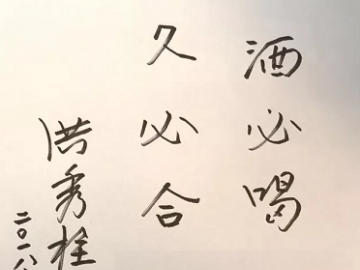 酒必喝
久必合
洪秀栓
二〇一八